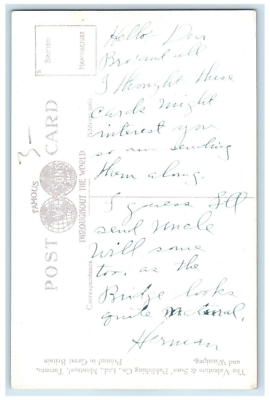 Hello Dan
Bro and all
I thought these
cards might
interest you
so am sending
them along.
I guess I'll
send Uncle
Will some
too, as the
Bridge looks
quite natural.
Herman
3-
BRITISH
MANUFACTURE
FAMOUS
THROUGHOUT THE WORLD
POST CARD
Correspondence
The Valentine & Sons' Publishing Co., Ltd., Montreal, Toronto,
and Winnipeg.
Printed in Great Britain